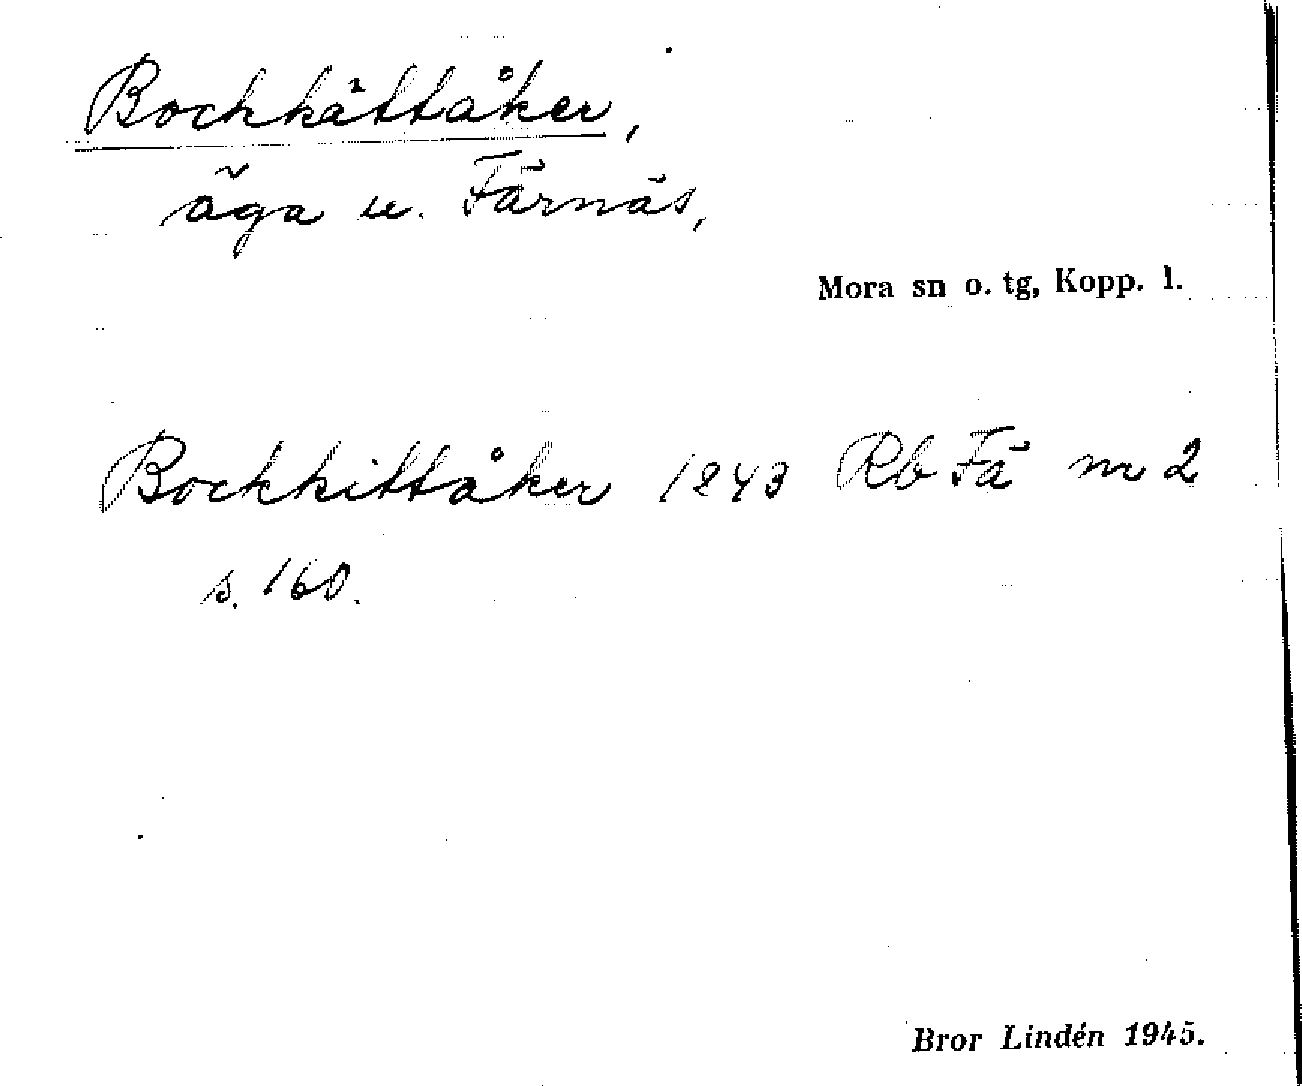 Bockkättåker,
äga u. Färnäs,
Mora sn o. tg, Kopp. l.
Bockkittåker 1843 Rb Fä nr 2
s. 160.
Bror Lindén 1945.